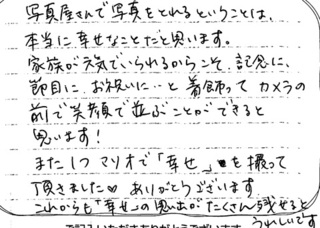 写真屋さんで写真をとれるということは、
本当に幸せなことだと思います。
家族が元気でいられるからこそ、記念に、
節目に、お祝いに…と着飾って カメラの
前で笑顔で並ぶことができると
思います！
また1つ マリオで「幸せ」を撮って
頂きました♡ ありがとうございます
これからも「幸せ」の思い出がたくさん残せると
うれしいです